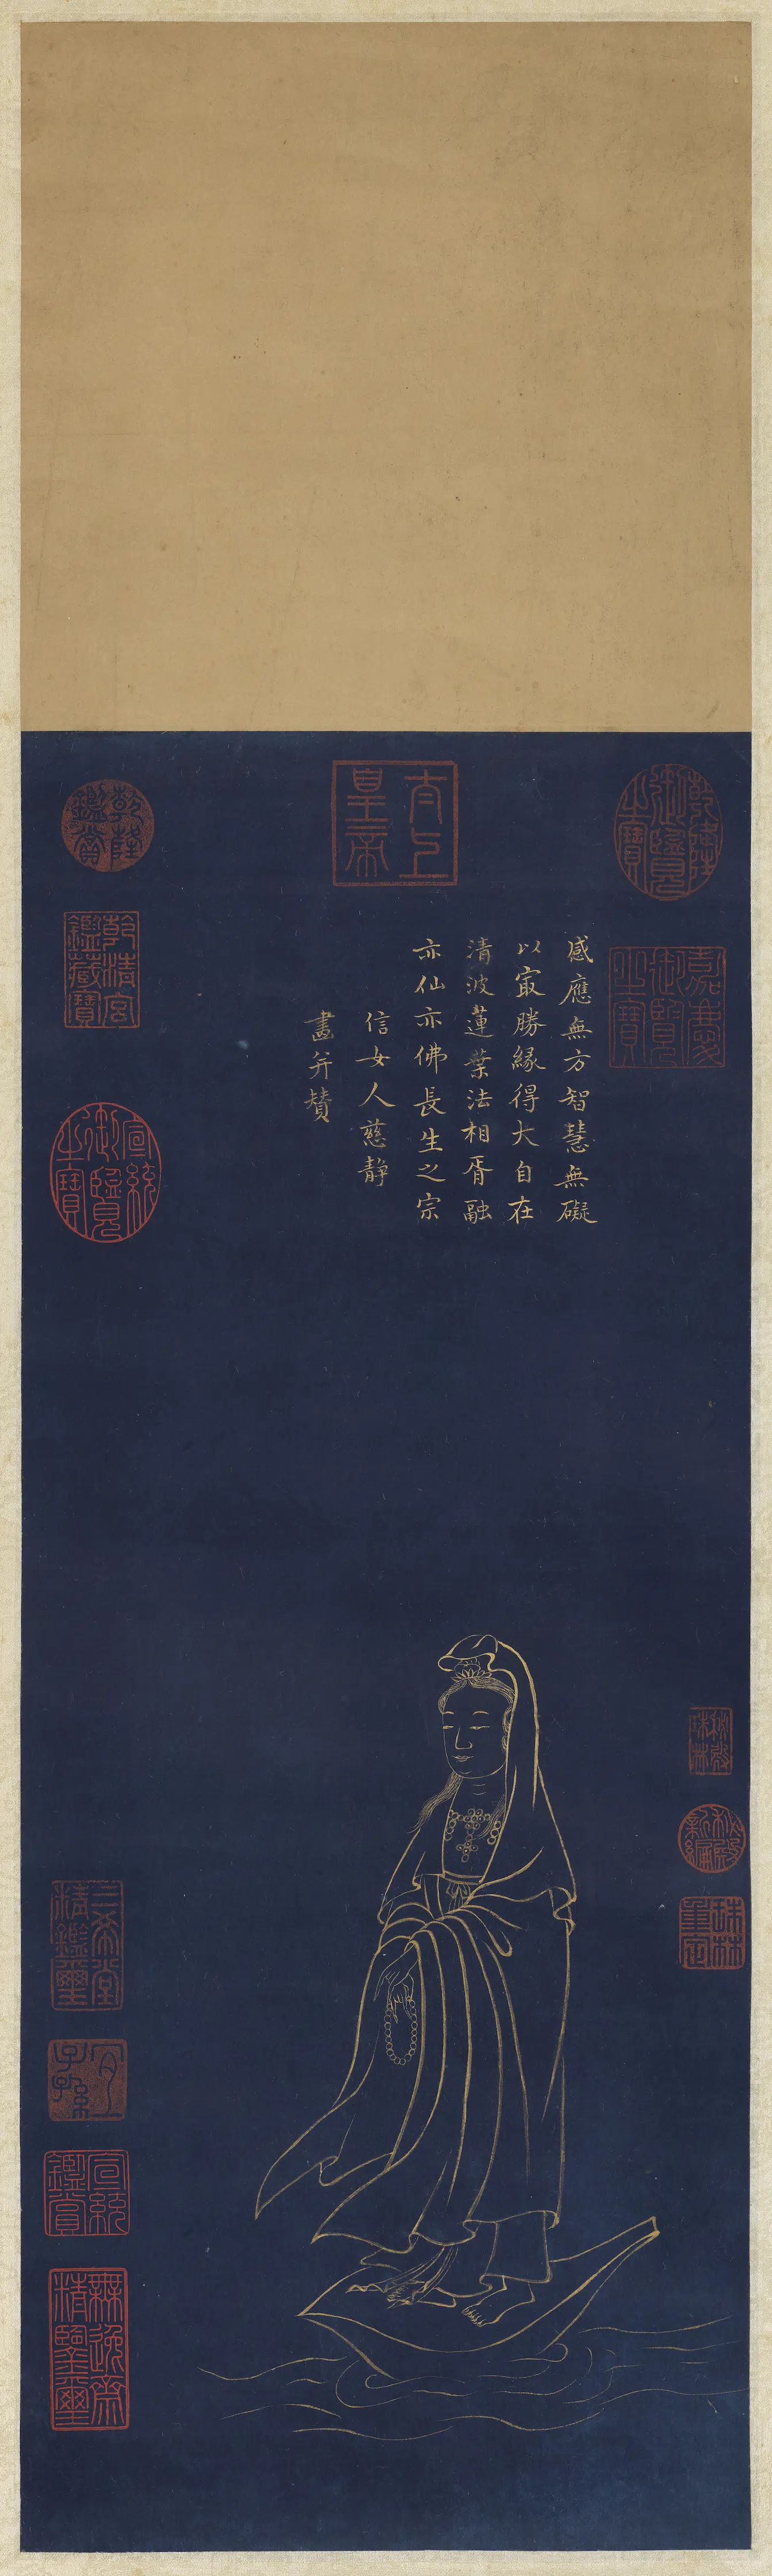 感應無方智慧無礙
以㝡勝緣得大自在
清波蓮葉法相胥融
亦仙亦佛長生之宗
信女人慈靜
畫并贊
太上皇帝
乾隆御覽之寶
嘉慶御覽之寶
乾隆鑑賞
乾清宮鑑藏寶
宣統御覽之寶
秘殿珠林
秘殿新編
珠林重定
三希堂精鑑璽
宜子孫
宣統鑑賞
無逸齋精鑒璽